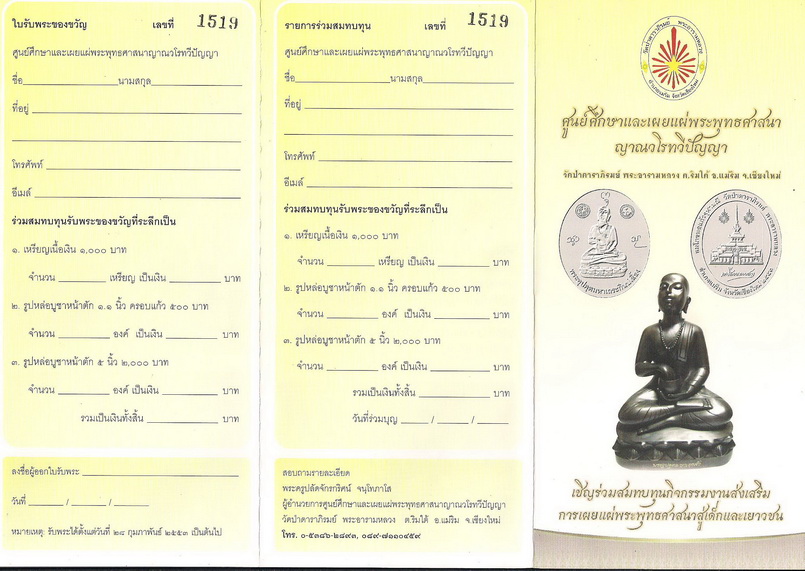 ใบรับพระของขวัญ เลขที่ 1519
ศูนย์ศึกษาและเผยแผ่พระพุทธศาสนาญาณวโรทวีปัญญา
ชื่อ นามสกุล
ที่อยู่
โทรศัพท์
อีเมล์
ร่วมสมทบทุนรับพระของขวัญที่ระลึกเป็น
๑. เหรียญเนื้อเงิน ๑,๐๐๐ บาท
จำนวน เหรียญ เป็นเงิน บาท
๒. รูปหล่อบูชาหน้าตัก ๑.๑ นิ้ว ครอบแก้ว ๕๐๐ บาท
จำนวน องค์ เป็นเงิน บาท
๓. รูปหล่อบูชาหน้าตัก ๕ นิ้ว ๒,๐๐๐ บาท
จำนวน องค์ เป็นเงิน บาท
รวมเป็นเงินทั้งสิ้น บาท
ลงชื่อผู้ออกใบรับพระ
วันที่ / /
หมายเหตุ: รับพระได้ตั้งแต่วันที่ ๒๘ กุมภาพันธ์ ๒๕๕๓ เป็นต้นไป
รายการร่วมสมทบทุน เลขที่ 1519
ศูนย์ศึกษาและเผยแผ่พระพุทธศาสนาญาณวโรทวีปัญญา
ชื่อ นามสกุล
ที่อยู่
โทรศัพท์
อีเมล์
ร่วมสมทบทุนรับพระของขวัญที่ระลึกเป็น
๑. เหรียญเนื้อเงิน ๑,๐๐๐ บาท
จำนวน เหรียญ เป็นเงิน บาท
๒. รูปหล่อบูชาหน้าตัก ๑.๑ นิ้ว ครอบแก้ว ๕๐๐ บาท
จำนวน องค์ เป็นเงิน บาท
๓. รูปหล่อบูชาหน้าตัก ๕ นิ้ว ๒,๐๐๐ บาท
จำนวน องค์ เป็นเงิน บาท
รวมเป็นเงินทั้งสิ้น บาท
วันที่ร่วมบุญ / /
สอบถามรายละเอียด
พระครูปลัดจักรกริศน์ จนฺโทภาโส
ผู้อำนวยการศูนย์ศึกษาและเผยแผ่พระพุทธศาสนาญาณวโรทวีปัญญา
วัดป่าดาราภิรมย์ พระอารามหลวง ต.ริมใต้ อ.แม่ริม จ.เชียงใหม่
โทร. ๐-๕๓๘๖-๒๘๙๓, ๐๘๙-๗๑๐๐๔๕๙
ศูนย์ศึกษาและเผยแผ่พระพุทธศาสนา
ญาณวโรทวีปัญญา
วัดป่าดาราภิรมย์ พระอารามหลวง ต.ริมใต้ อ.แม่ริม จ.เชียงใหม่
เชิญร่วมสมทบทุนกิจกรรมงานส่งเสริม
การเผยแผ่พระพุทธศาสนาสู่เด็กและเยาวชน